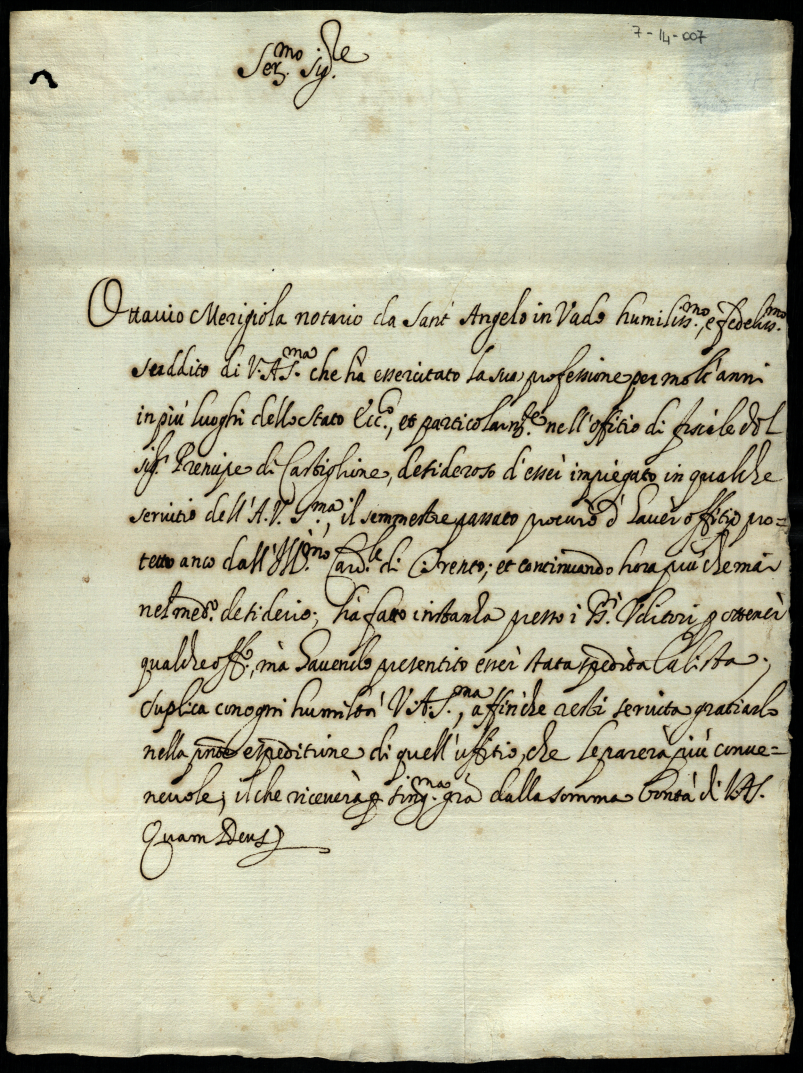 7-14-007
Ser.mo Sig.re
Ottavio Merigiola notario da Sant' Angelo in Vado humiliss.mo, e fedeliss.mo
suddito di V.A.S.ma che hà essercitato la sua professione per molt'anni
in più luoghi dello stato Ecc.o, et particolarm.te nell'offitio di fiscale del
sig.r Prencipe di Castiglione, desideroso d'esser impiegato in qualche
servitio dell'A.V.S.ma, il semmestre passato procurò d'haver offitio pro=
tetto anco dall'Ill.mo Card.le di Trento; et continuando hora più che mai
nel med.o desiderio; hà fatto instanza presso i SS.ri Uditori p ottener
qualche off.o, mà havendo presentito esser stata spedita la lista;
suplica con ogni humiltà V.A.S.ma, affinche resti servita gratiarlo
nella pnte espeditione di quell'uffitio, che le parerà più conve=
nevole; il che riceverà p sing.ma grà dalla somma bontà di V.A.S.
Quam Deus